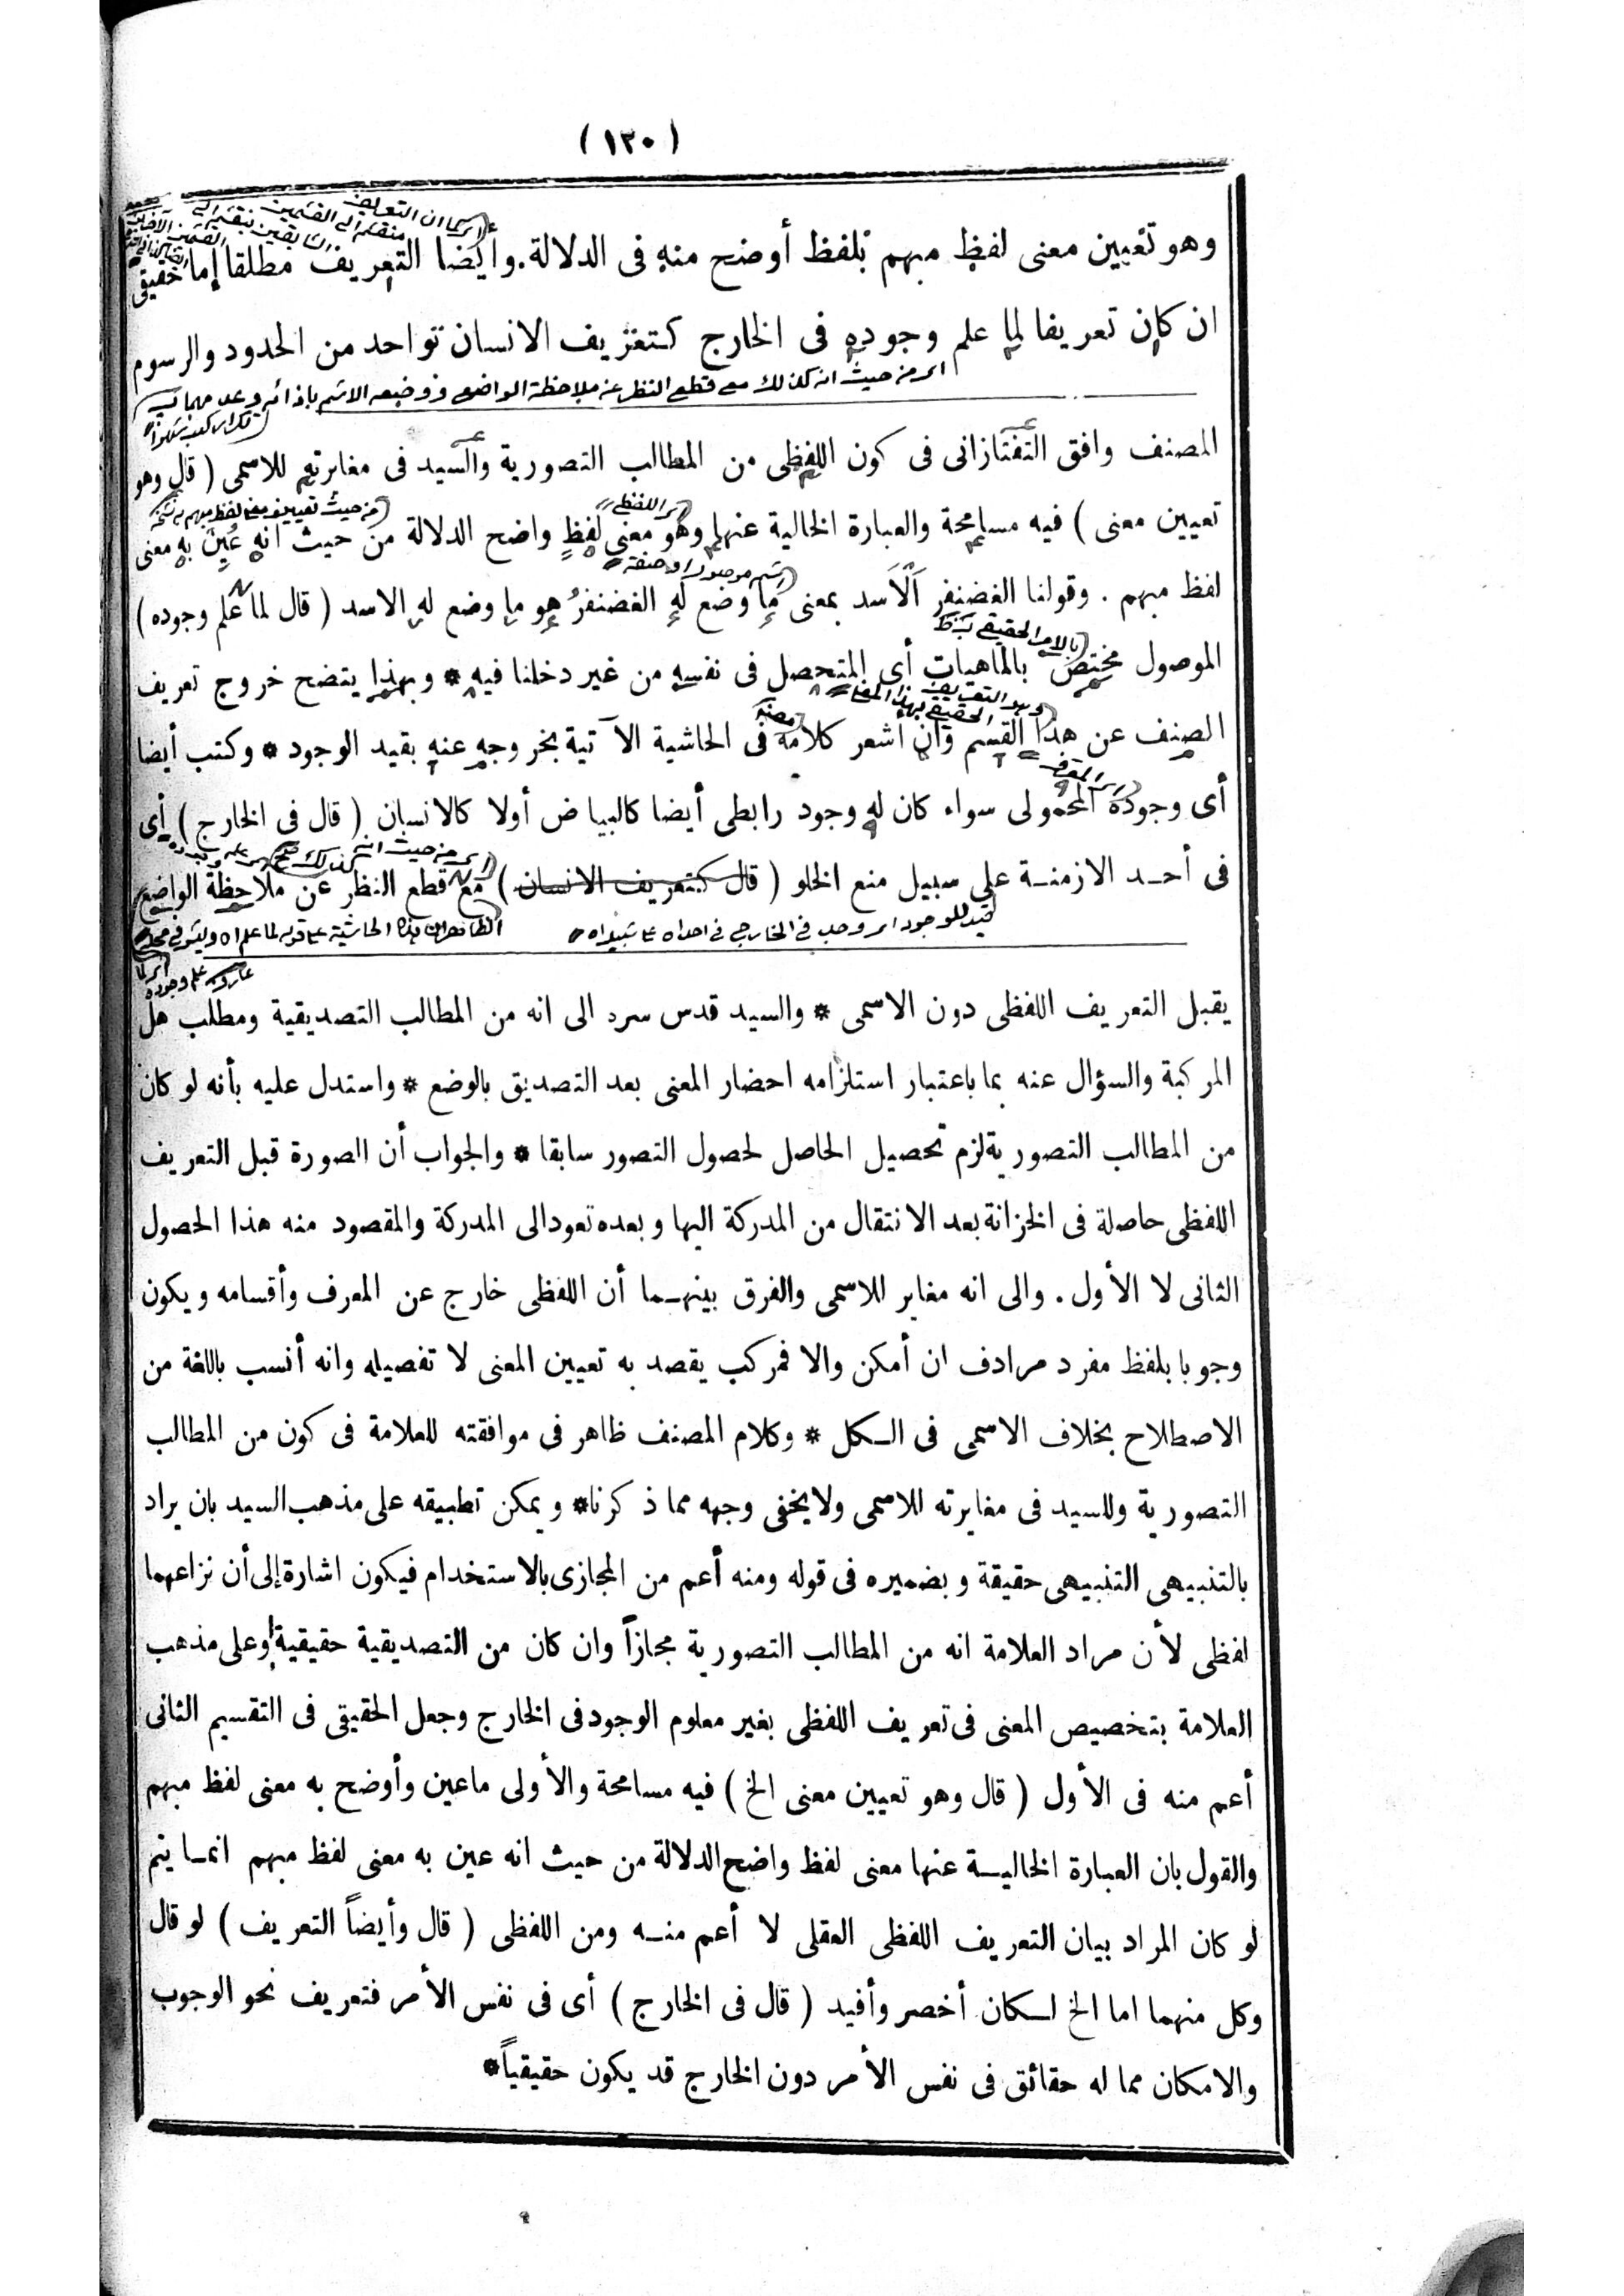 (١٢٠)
وهو تعيين معنى لفظ مبهم بلفظ أوضح منه فى الدلالة. وأيضا التعريف مطلقا إما حقيقى
ان كان تعريفا لما علم وجوده فى الخارج كتعريف الانسان بواحد من الحدود والرسوم
اى من حيث انه كذلك مع قطع النظر عن ملاحظة الواضع ووضعه الاسم بازائه
المصنف وافق التفتازانى فى كون اللفظى من المطالب التصورية والسيد فى مغايرته للاسمى ( قال وهو
اى اللفظى
تعيين معنى ) فيه مسامحة والعبارة الخالية عنها وهو معنى لفظٍ واضح الدلالة من حيث انه عُيِّنَ به معنى
لفظ مبهم . وقولنا الغضنفر الأسد بمعنى ما وضع له الغضنفرُ هو ما وضع له الاسد ( قال لما علم وجوده )
الموصول مختص بالماهيات أى المتحصل فى نفسه من غير دخلنا فيه * وبهذا يتضح خروج تعريف
الصنف عن هذا القسم وان أشعر كلامه فى الحاشية الآتية بخروجه عنه بقيد الوجود * وكتب أيضا
أى وجوده المحمولى سواء كان له وجود رابطى أيضا كالبياض أولا كالانسان ( قال فى الخارج ) أى
فى أحد الازمنة على سبيل منع الخلو ( قال كتعريف الانسان ) مع قطع النظر عن ملاحظة الواضع
يقبل التعريف اللفظى دون الاسمى * والسيد قدس سره الى انه من المطالب التصديقية ومطلب هل
المركبة والسؤال عنه بما باعتبار استلزامه احضار المعنى بعد التصديق بالوضع * واستدل عليه بأنه لو كان
من المطالب التصورية لزم تحصيل الحاصل لحصول التصور سابقا * والجواب أن الصورة قبل التعريف
اللفظى حاصلة فى الخزانة بعد الانتقال من المدركة اليها وبعده تعود الى المدركة والمقصود منه هذا الحصول
الثانى لا الأول . والى انه مغاير للاسمى والفرق بينهما أن اللفظى خارج عن المعرف وأقسامه ويكون
وجوبا بلفظ مفرد مرادف ان أمكن والا فمركب يقصد به تعيين المعنى لا تفصيله وانه أنسب باللغة من
الاصطلاح بخلاف الاسمى فى الكل * وكلام المصنف ظاهر فى موافقته للعلامة فى كون من المطالب
التصورية وللسيد فى مغايرته للاسمى ولا يخفى وجهه مما ذكرنا * ويمكن تطبيقه على مذهب السيد بان يراد
بالتنبيهى التنبيهى حقيقة وبضميره فى قوله ومنه أعم من المجازى بالاستخدام فيكون اشارة إلى أن نزاعهما
لفظى لأن مراد العلامة انه من المطالب التصورية مجازاً وان كان من التصديقية حقيقية أو على مذهب
العلامة بتخصيص المعنى فى تعريف اللفظى بغير معلوم الوجود فى الخارج وجعل الحقيقى فى التقسيم الثانى
أعم منه فى الأول ( قال وهو تعيين معنى الخ ) فيه مسامحة والأولى ماعين وأوضح به معنى لفظ مبهم
والقول بان العبارة الخالية عنها معنى لفظ واضح الدلالة من حيث انه عين به معنى لفظ مبهم انما يتم
لو كان المراد بيان التعريف اللفظى العقلى لا أعم منه ومن اللفظى ( قال وأيضاً التعريف ) لو قال
وكل منهما اما الخ لكان أخصر وأفيد ( قال فى الخارج ) أى فى نفس الأمر فتعريف نحو الوجوب
والامكان مما له حقائق فى نفس الأمر دون الخارج قد يكون حقيقياً *